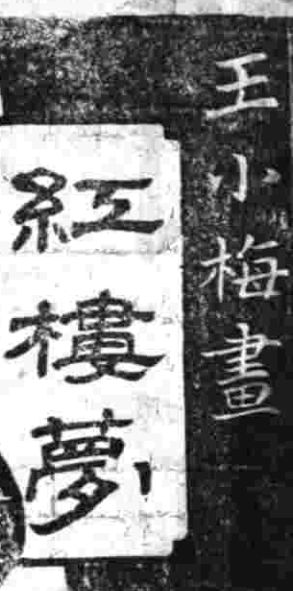 王小梅畫
紅樓夢